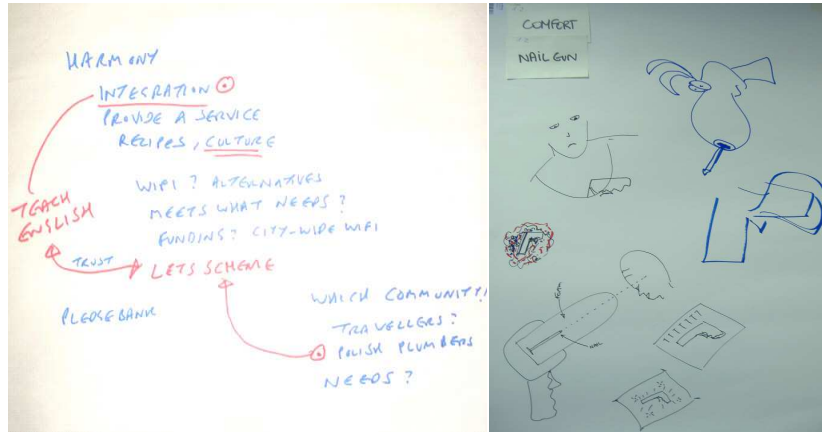 HARMONY
INTEGRATION
PROVIDE A SERVICE
RECIPES, CULTURE
WIFI? ALTERNATIVES
MEETS WHAT NEEDS?
FUNDING? CITY-WIDE WIFI
TEACH
ENGLISH
TRUST
LETS SCHEME
PLEDGEBANK
WHICH COMMUNITY?
TRAVELLERS?
POLISH PLUMBERS
NEEDS?
COMFORT
NAIL GUN
NAIL